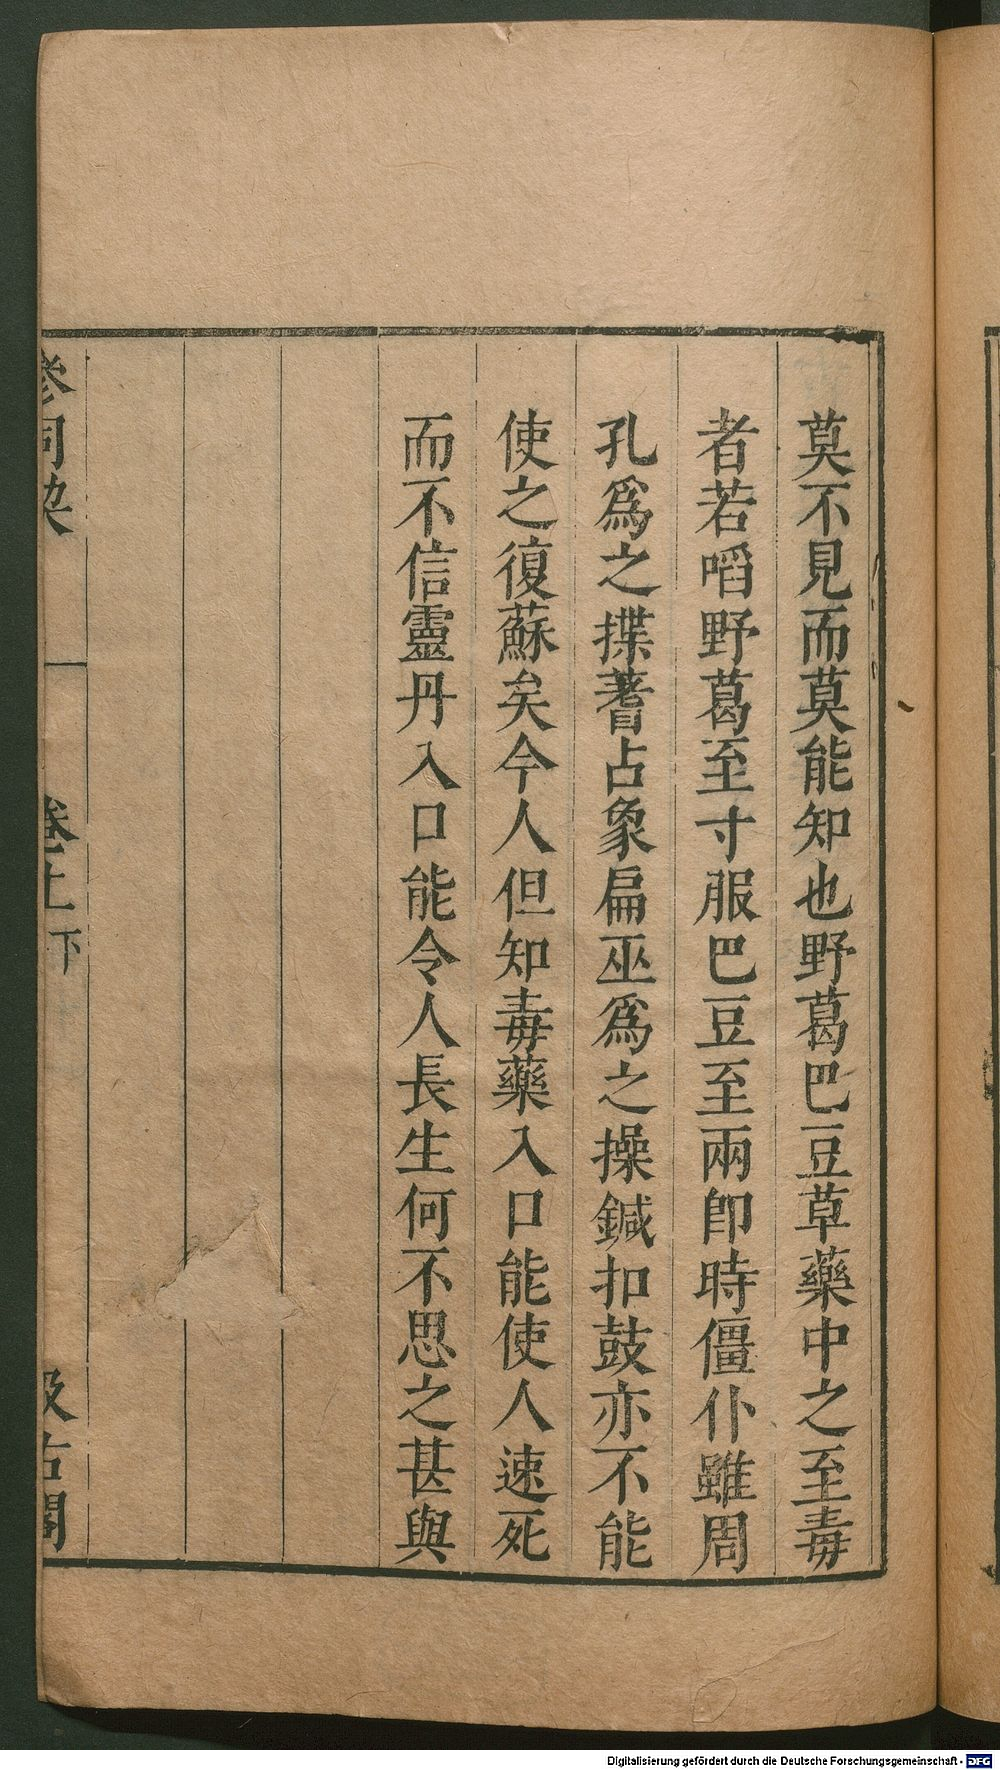 莫不見而莫能知也野葛巴豆草藥中之至毒
者若㗖野葛至寸服巴豆至兩卽時僵仆雖周
孔爲之揲蓍占象扁巫爲之操鍼扣鼓亦不能
使之復蘇矣今人但知毒藥入口能使人速死
而不信靈丹入口能令人長生何不思之甚與
參同契 一 卷上下 汲古閣
Digitalisierung gefördert durch die Deutsche Forschungsgemeinschaft - DFG